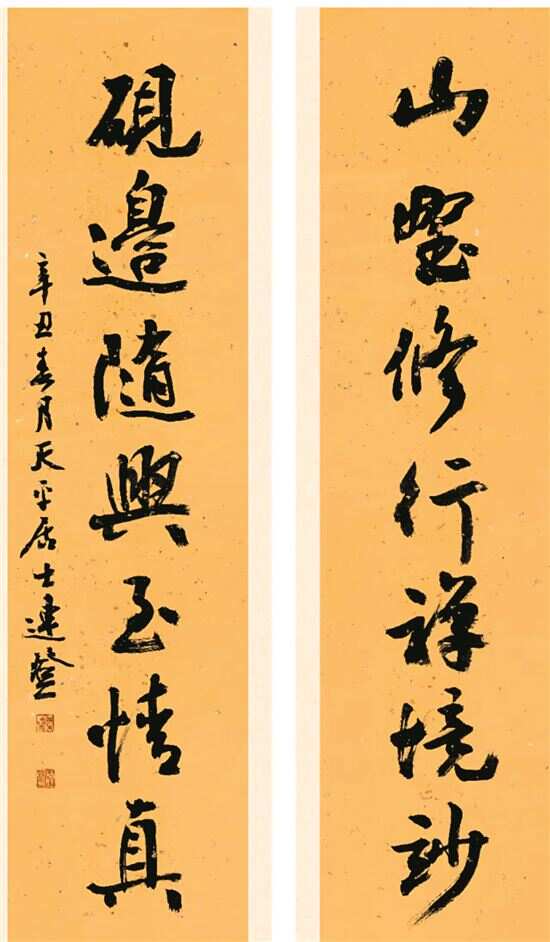 山修行禪境妙
硯邊隨興至情真
辛丑春月天平居士連登